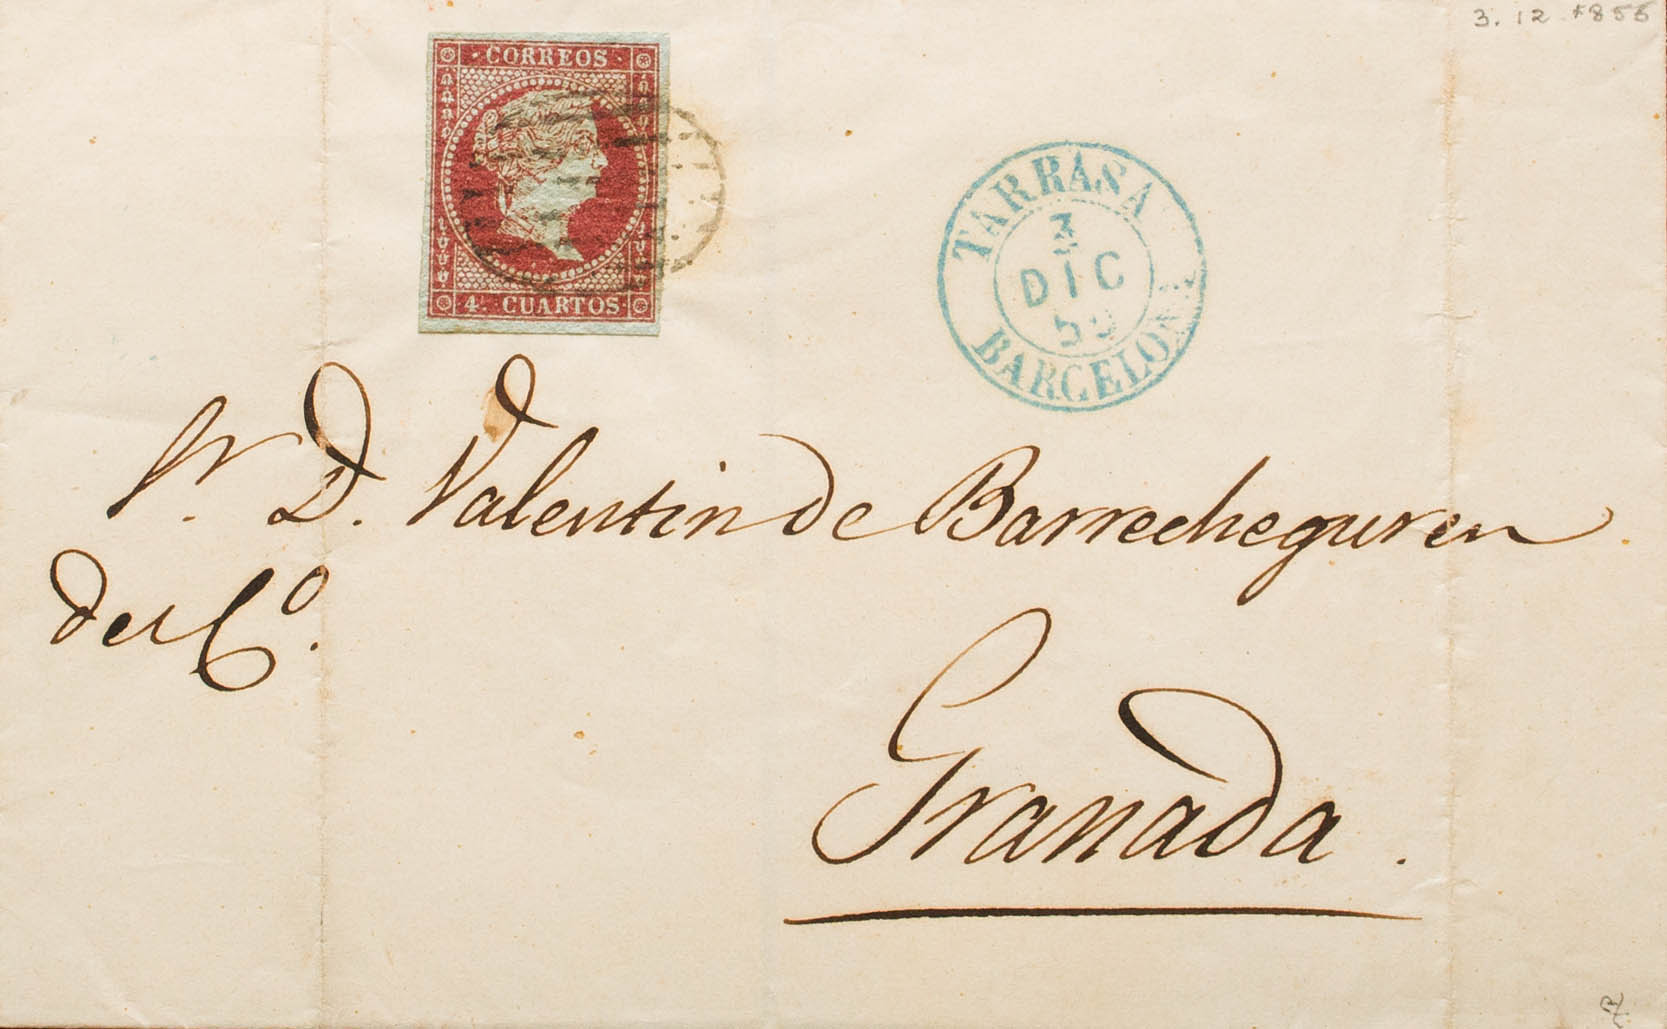 3. 12 1855
CORREOS
4 CUARTOS
TARRASA
3
DIC
55
BARCELONA
Sr. D. Valentin de Barrecheguren
del Cº.
Granada.